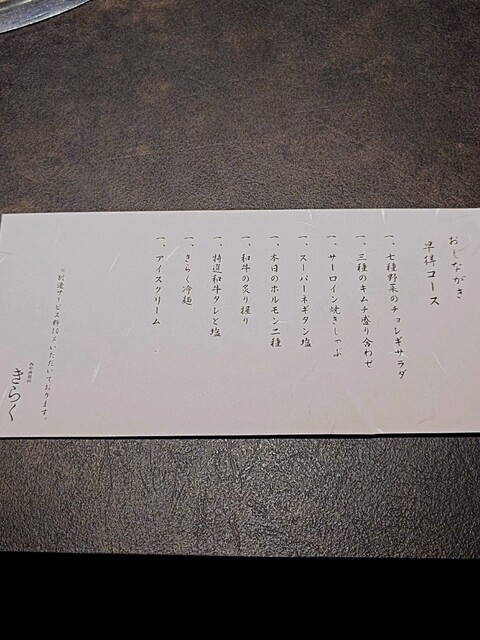 おしながき
早得コース
一、七種野菜のチョレギサラダ
一、三種のキムチ盛り合わせ
一、サーロイン焼きしゃぶ
一、スーパーネギタン塩
一、本日のホルモン二種
一、和牛の炙り握り
一、特選和牛タレと塩
一、きらく冷麺
一、アイスクリーム
※別途サービス料10%いただいております。
きらく